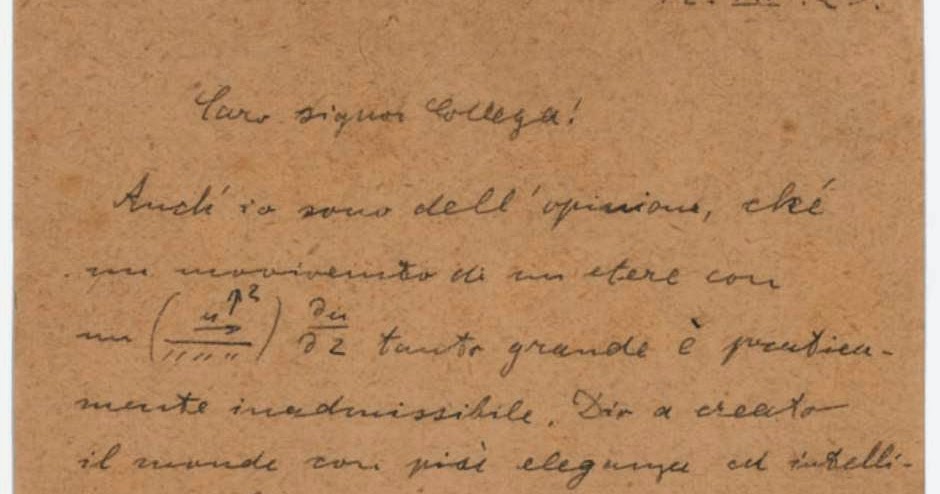 Caro signor Collega!
Anch' io sono dell' opinione, ché
un movivemto di un etere con
un ( u ↑ z → ) ∂u/∂z tanto grande è pratica-
mente inadmissibile. Dio a creato
il monde con più eleganza ed intelli-